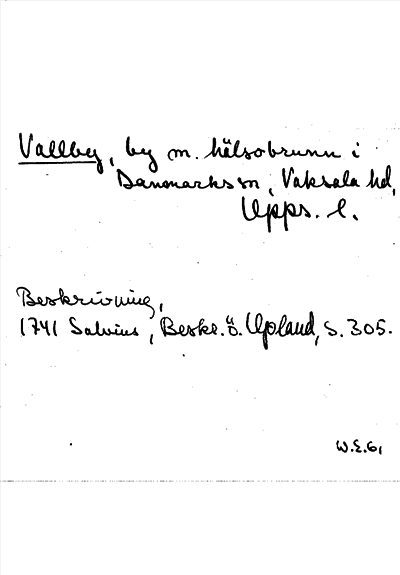 Vallby, by m. hälsobrunn i
Danmarks sn, Vaksala hd,
Upps. l.
Beskrivning,
1741 Salvius, Beskr. ö. Upland, s. 305.
W.E.61